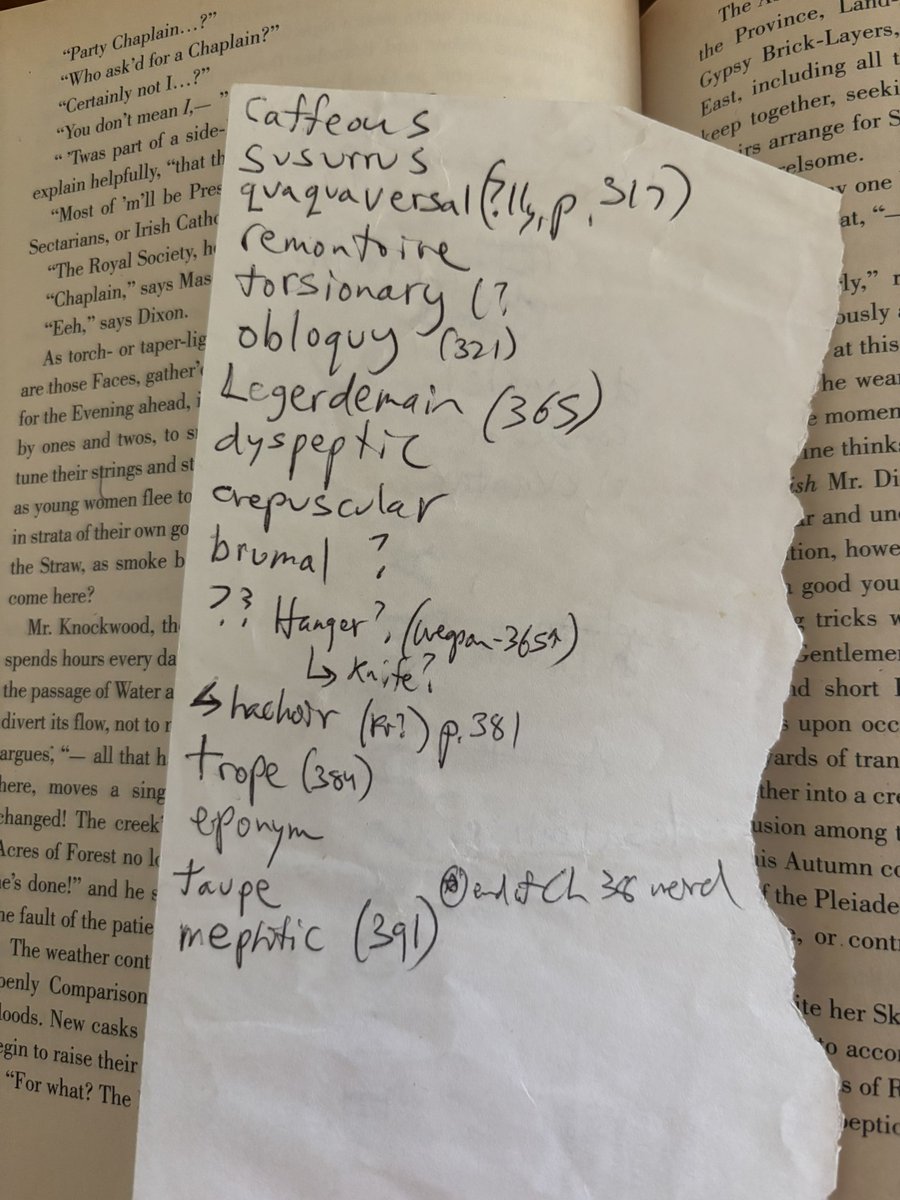 “Party Chaplain…?”
“Who ask’d for a Chaplain?”
“Certainly not I…?”
“You don’t mean I,— ”
“ ’Twas part of a side-
explain helpfully, “that th
“Most of ’m’ll be Pres
Sectarians, or Irish Catho
“The Royal Society, h
“Chaplain,” says Mas
“Eeh,” says Dixon.
As torch- or taper-lig
are those Faces, gather’
for the Evening ahead, i
by ones and twos, to s
tune their strings and st
as young women flee to
in strata of their own go
the Straw, as smoke b
come here?
Mr. Knockwood, th
spends hours every da
the passage of Water a
divert its flow, not to r
argues, “— all that h
here, moves a sing
changed! The creek’
Acres of Forest no lo
e’s done!” and he s
he fault of the patie
The weather cont
penly Comparison
loods. New casks
egin to raise their
“For what? The
Caffeous
Susurrus
quaquaversal (? p. 317)
remontoire
torsionary (?
obloquy (321)
Legerdemain (365)
dyspeptic
crepuscular
brumal ?
?? Hanger?, (weapon-365↑)
↳ Knife?
↳ hachoir (Fr?) p. 381
trope (384)
eponym
taupe
end of Ch 38 weird
mephitic (391)
The
the Province, Land-
Gypsy Brick-Layers,
East, including all t
keep together, seeki
irs arrange for S
relsome.
y one
at, “—
ly,”
ously
at this
he wear
e momen
ine think
ish Mr. Di
ar and un
tion, howe
good you
g tricks w
Gentleme
nd short
s upon occ
ards of tran
ther into a cre
usion among t
is Autumn co
f the Pleiade
, or contr
ite her Sk
to acco
s of R
peptic